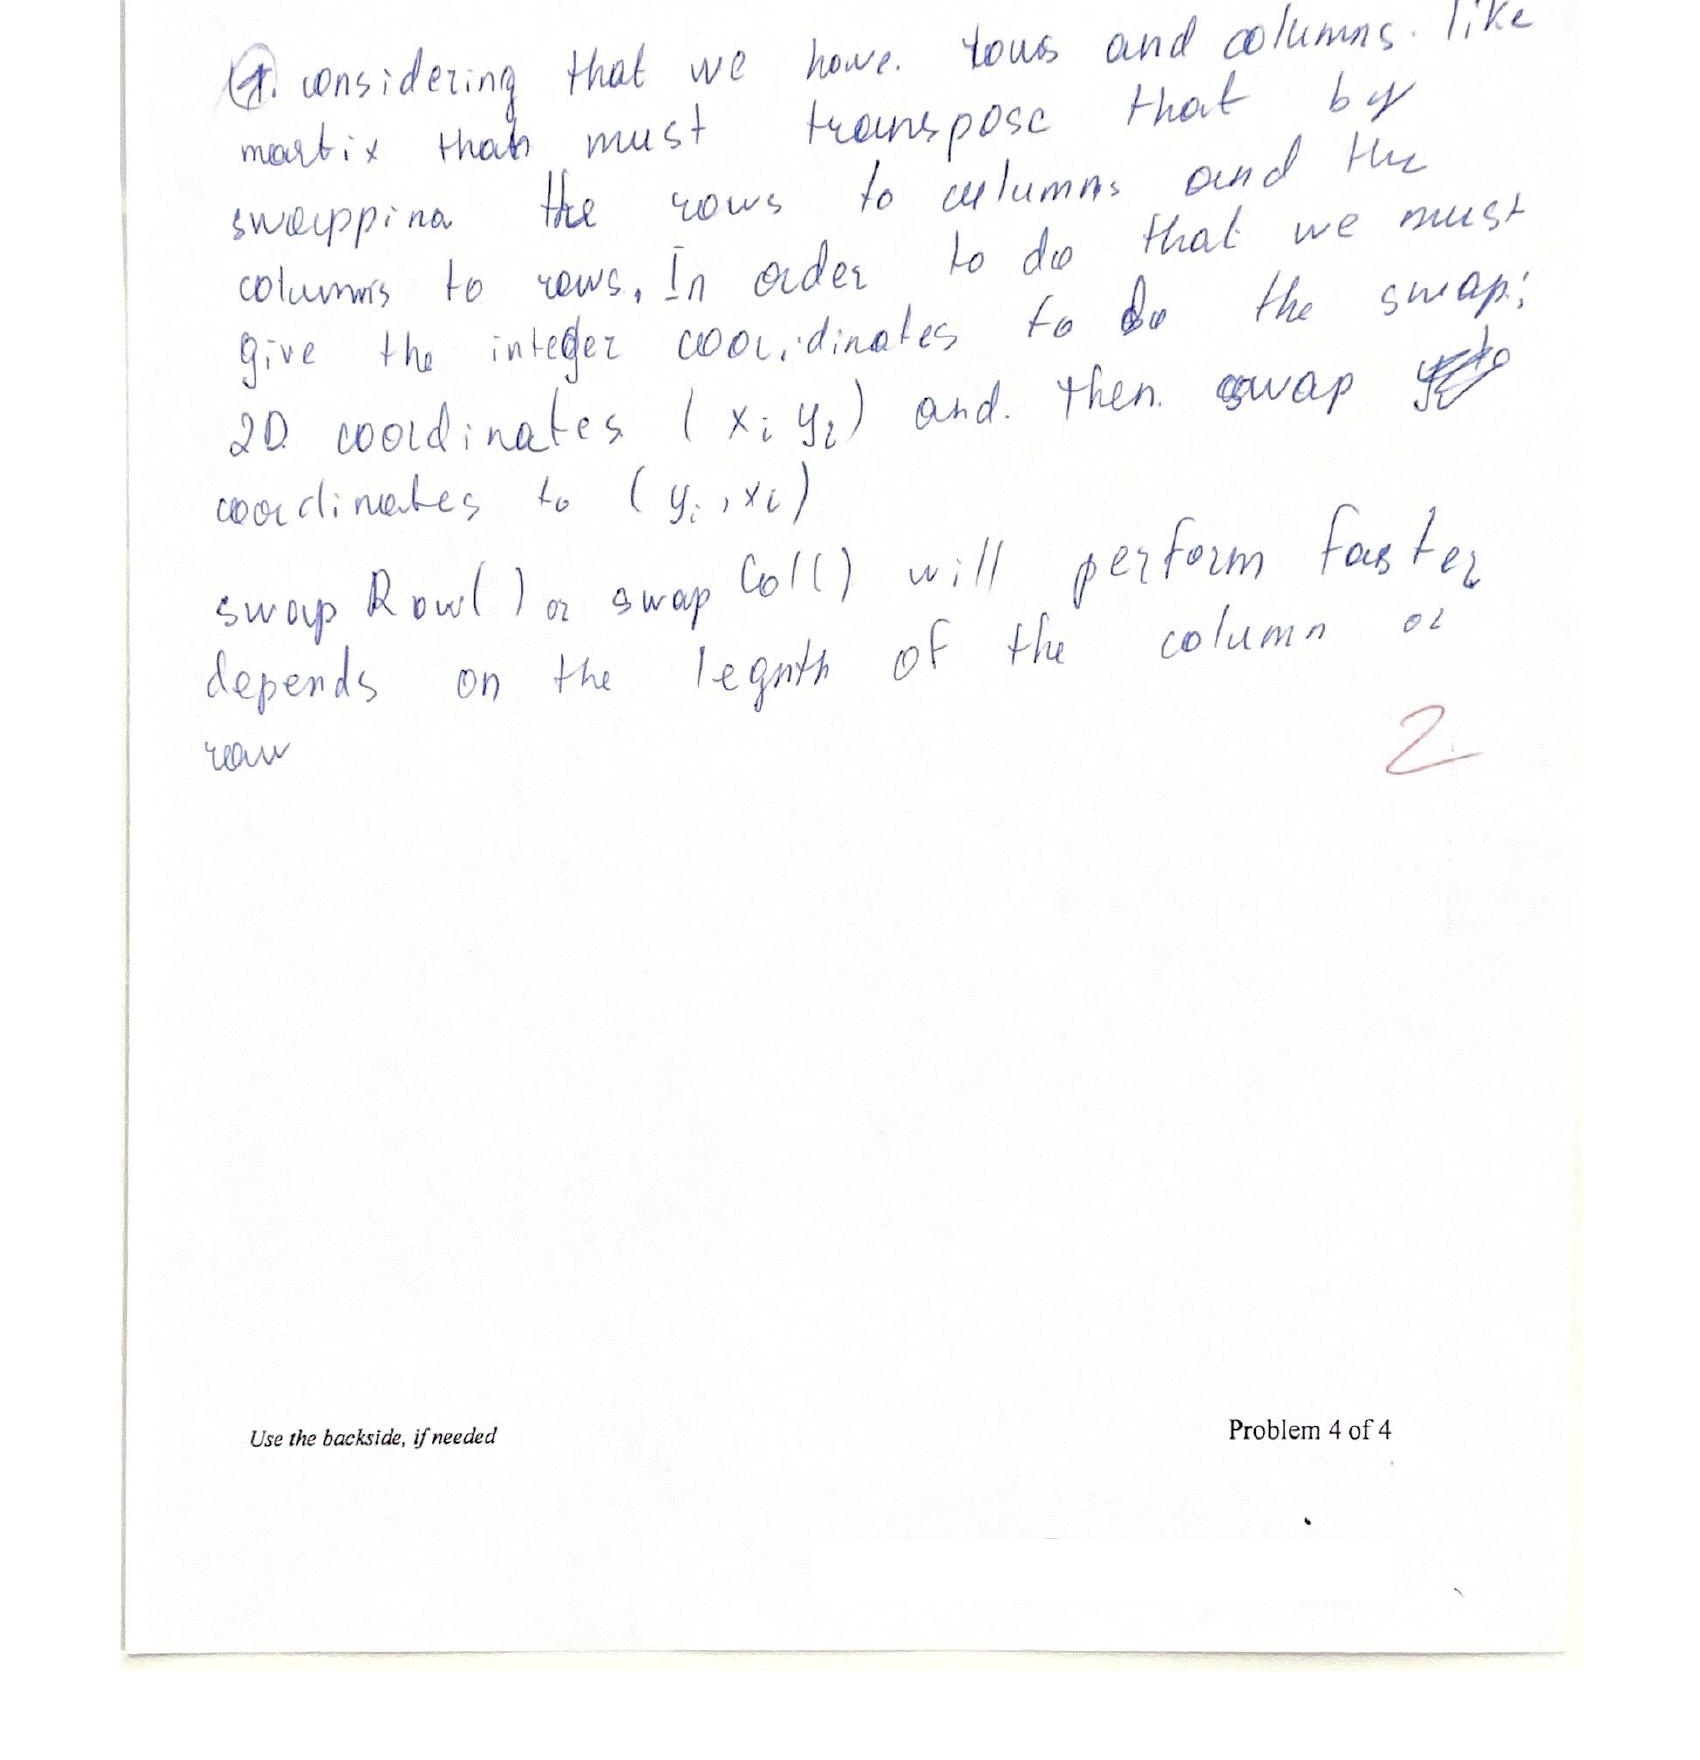 1. considering that we have rows and columns. like
martix than must transpose that by
swapping the rows to columns and the
columns to rows. In order to do that we must
give the integer coordinates to do the swap:
2D coordinates (xi yi) and then swap
coordinates to (yi, xi)
swap Row() or swap Col() will perform faster
depends on the legnth of the column or
row
2
Use the backside, if needed
Problem 4 of 4